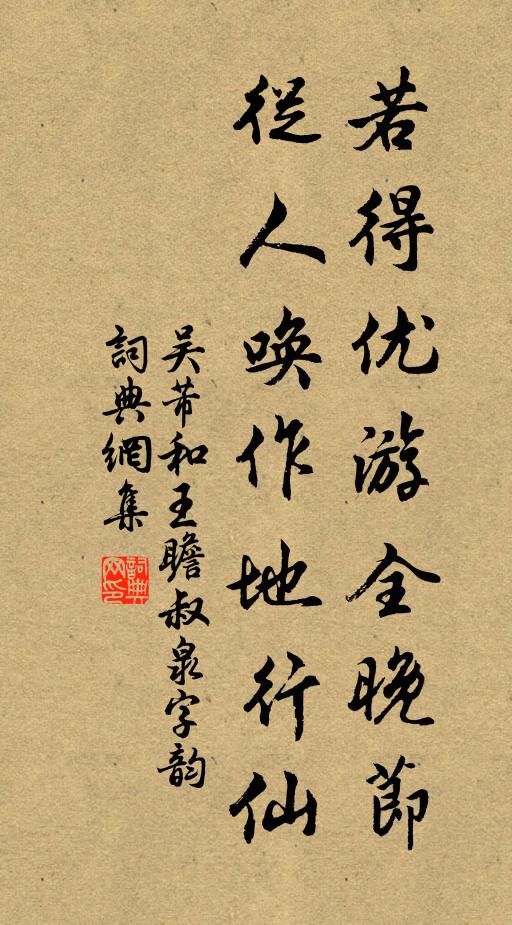 若得优游全晚節
從人唤作地行仙
吴芾和王瞻叔泉字韵
詞典網集
詞典網印